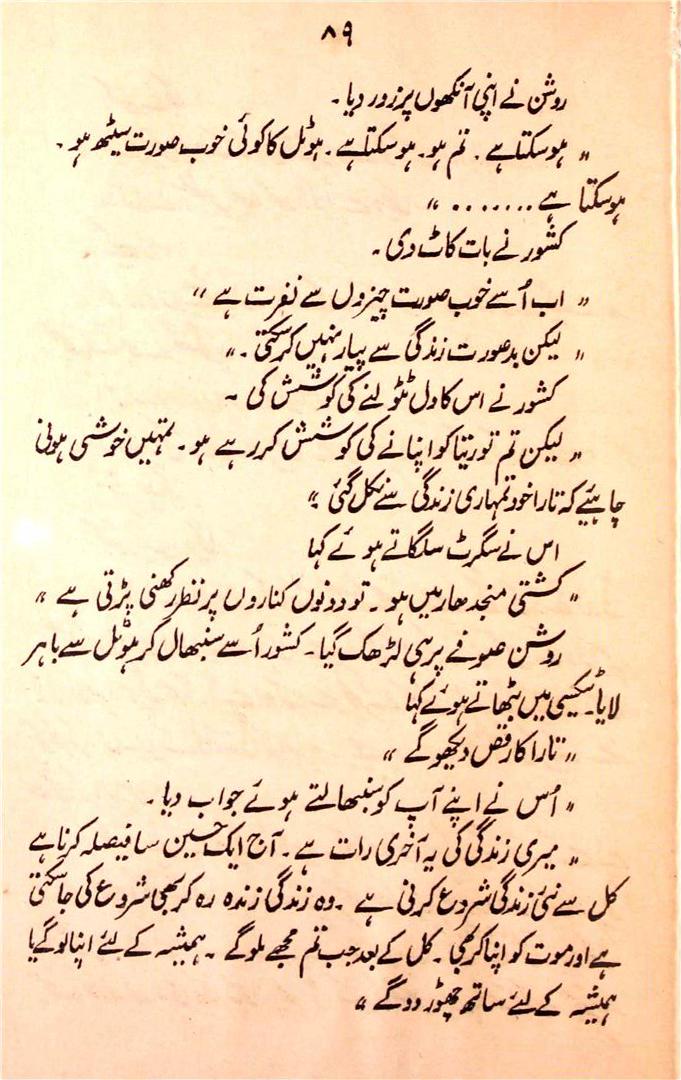 ۸۹
روشن نے اپنی آنکھوں پر زور دیا۔
" ہوسکتا ہے۔ تم ہو۔ ہوسکتا ہے۔ ہوٹل کا کوئی خوب صورت سیٹھ ہو۔
ہوسکتا ہے ....... "
کشور نے بات کاٹ دی۔
" اب اُسے خوب صورت چیزوں سے نفرت ہے "
" لیکن بدصورت زندگی سے پیار نہیں کرسکتی۔ "
کشور نے اس کا دل ٹٹولنے کی کوشش کی ۔
" لیکن تم تو ریتا کو اپنانے کی کوشش کررہے ہو۔ تمہیں خوشی ہونی
چاہیئے کہ تارا خود تمہاری زندگی سے نکل گئی "
اس نے سگرٹ سلگاتے ہوئے کہا
" کشتی منجدھار میں ہو۔ تو دونوں کناروں پر نظر رکھنی پڑتی ہے "
روشن صوفے پر ہی لڑھک گیا۔ کشور اُسے سنبھال کر ہوٹل سے باہر
لایا۔ ٹیکسی میں بٹھاتے ہوئے کہا
" تارا کا رقص دیکھوگے "
" اُس نے اپنے آپ کو سنبھالتے ہوئے جواب دیا۔
" میری زندگی کی یہ آخری رات ہے۔ آج ایک حسین سا فیصلہ کرنا ہے
کل سے نئی زندگی شروع کرنی ہے ۔ وہ زندگی زندہ رہ کر بھی شروع کی جاسکتی
ہے اور موت کو اپنا کر بھی۔ کل کے بعد جب تم مجھے ملوگے ۔ ہمیشہ کے لئے اپنا لوگے یا
ہمیشہ کے لئے ساتھ چھوڑ دوگے "